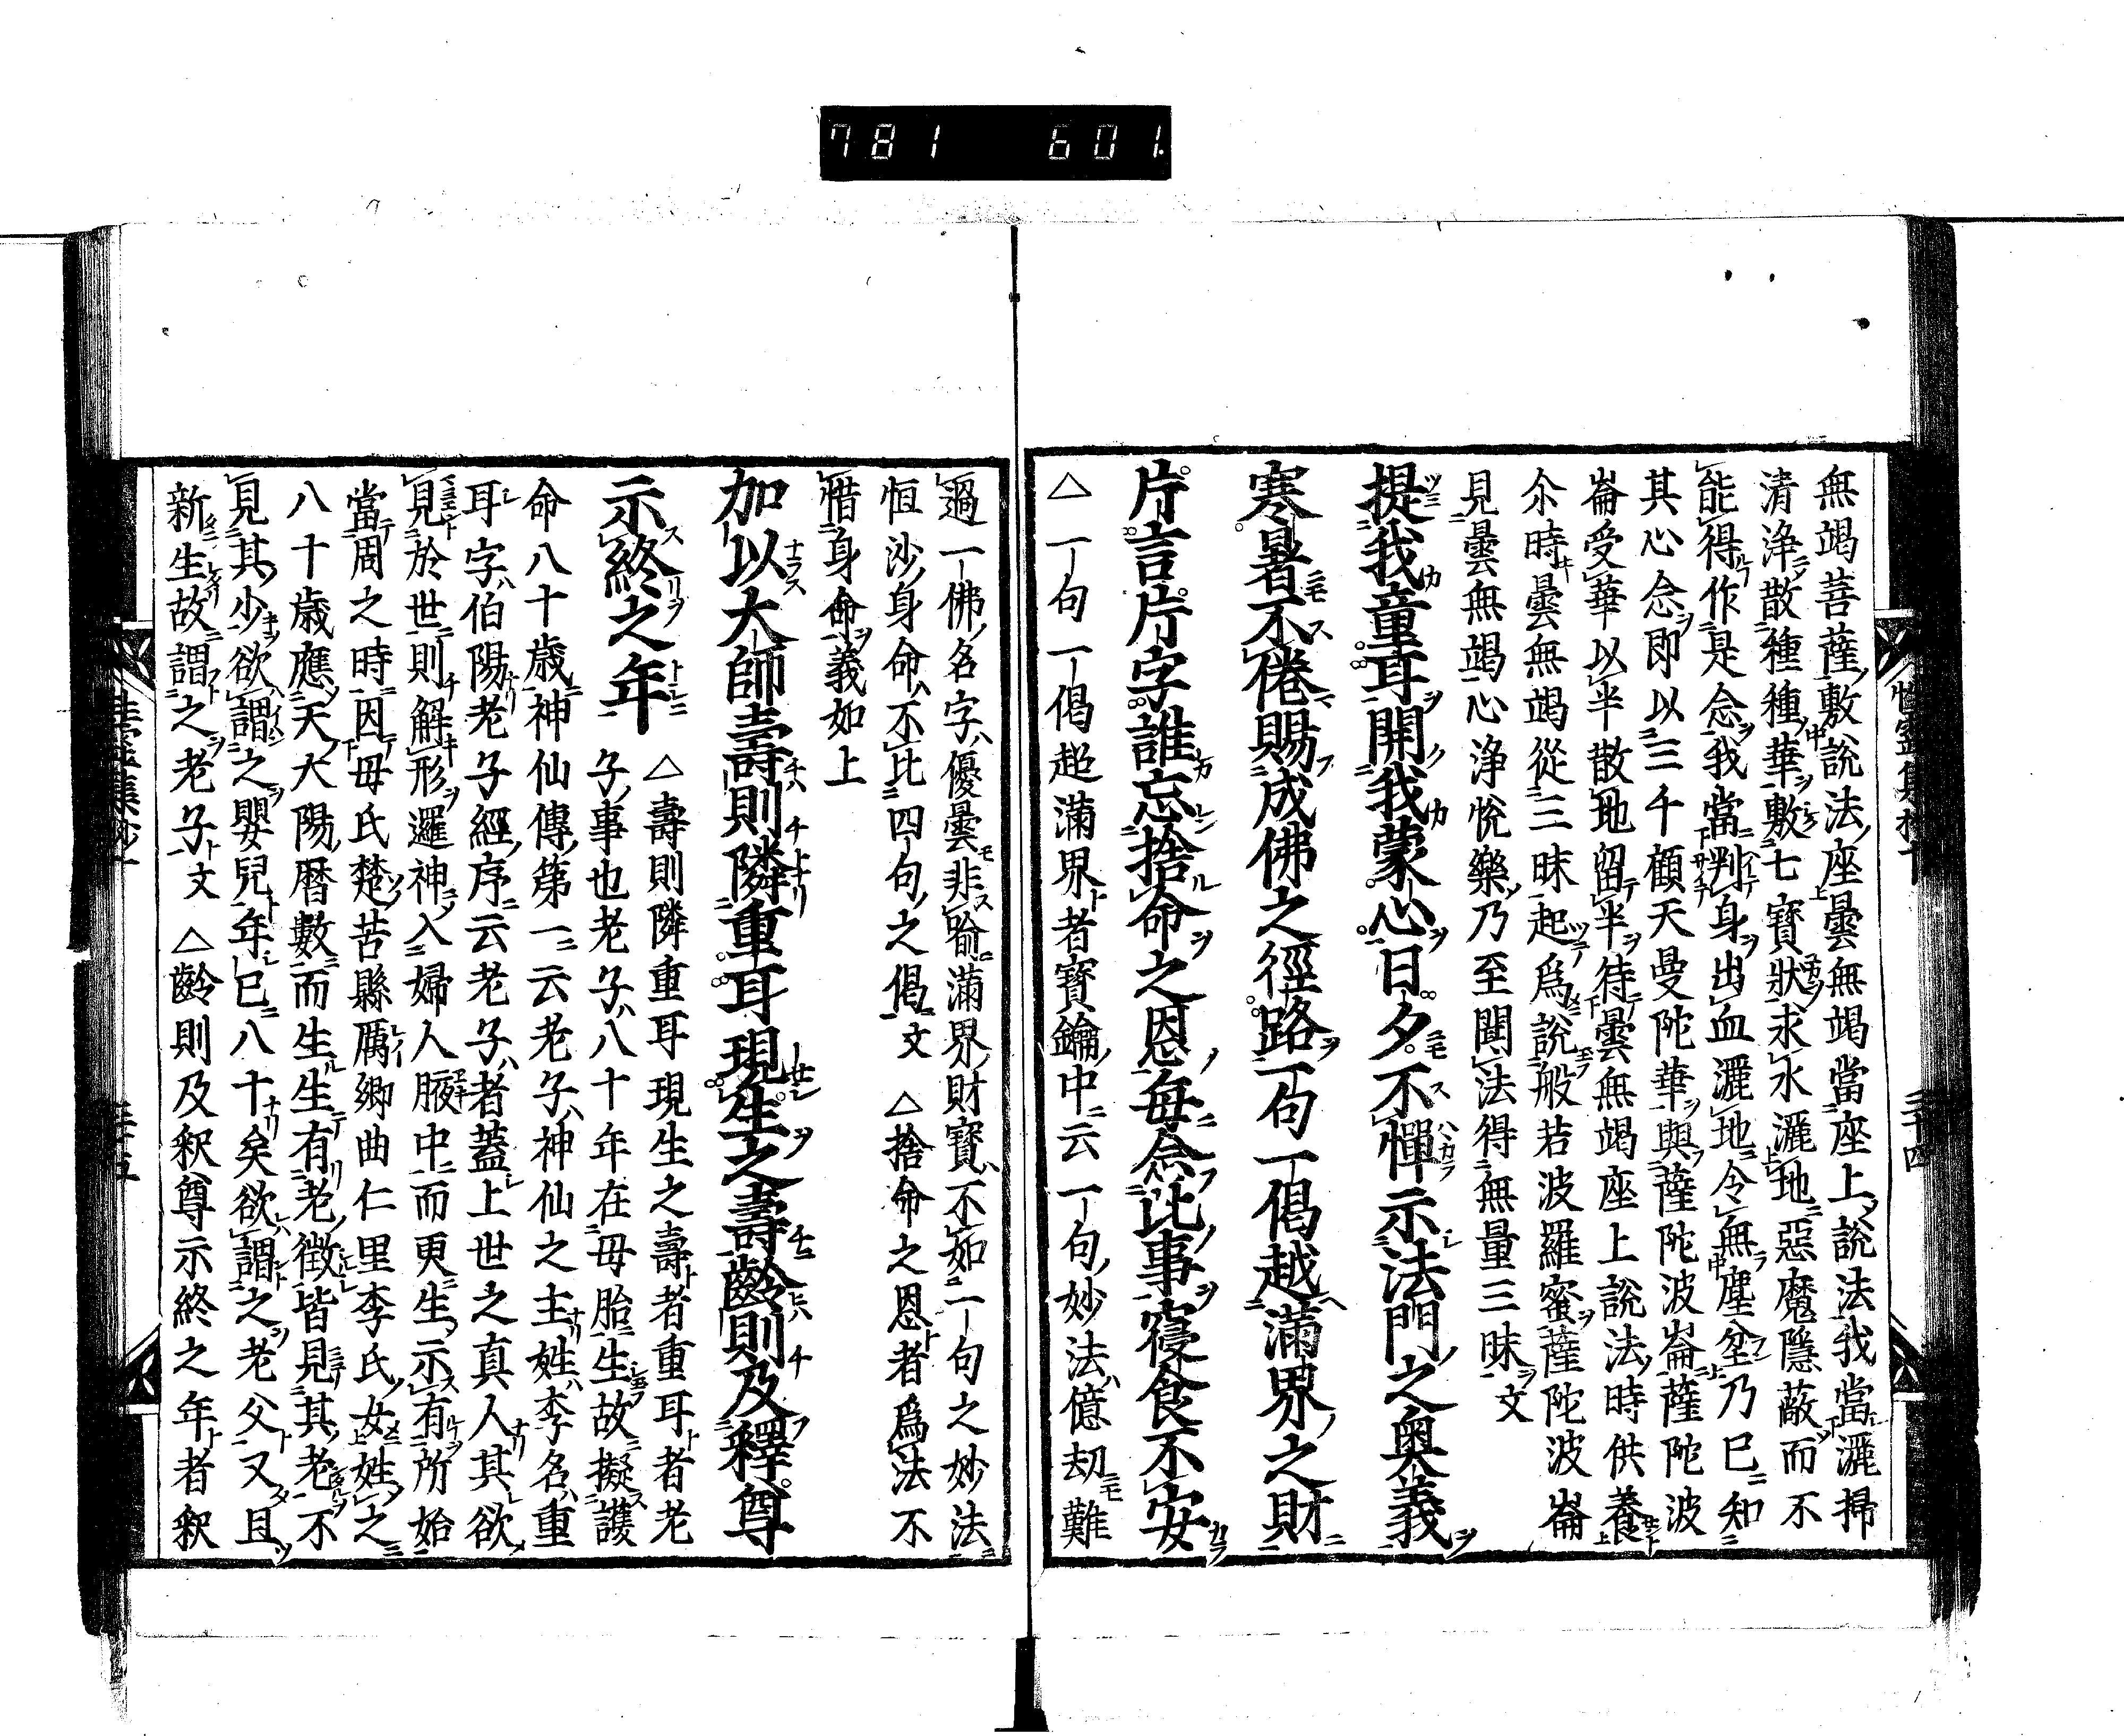 781 601
無竭菩薩敷說法座曇無竭當座上說法我當灑掃
清淨散種種華敷七寶狀求水灑地惡魔隱蔽而不
能得作是念我當判身出血灑地令無塵坌乃已知
其心念即以三千顧天曼陀華與薩陀波崙薩陀波
崙受華以半散地留半待曇無竭座上說法時供養
尒時曇無竭從三昧起為說般若波羅蜜薩陀波崙
見曇無竭心淨悅樂乃至聞法得無量三昧文
提我童耳開我蒙心日夕不憚示法門之奧義
寒暑不倦賜成佛之徑路一句一偈越滿界之財
片言片字誰忘捨命之恩每念此事寢食不安
△一句一偈超滿界者寶鑰中云一句妙法億劫難
過一佛名字優曇非喻滿界財寶不如一句之妙法
恒沙身命不比四句之偈文 △捨命之恩者爲法不
惜身命義如上
加以大師壽則隣重耳現生之壽齡則及釋尊
示終之年 △壽則隣重耳現生之壽者重耳者老
子事也老子八十年在母胎生故擬護
命八十歳神仙傳第一云老子神仙之主姓李名重
耳字伯陽老子經序云老子者蓋上世之真人其欲
見於世則解形邏神入婦人腋中而更生示有所始
當周之時因母氏楚苦縣厲卿曲仁里李氏女姓之
八十歳應天大陽暦數而生生有老徴皆見其老不
見其少欲謂之嬰兒年已八十矣欲謂之老父又且
新生故謂之老子文 △齡則及釈尊示終之年者釈